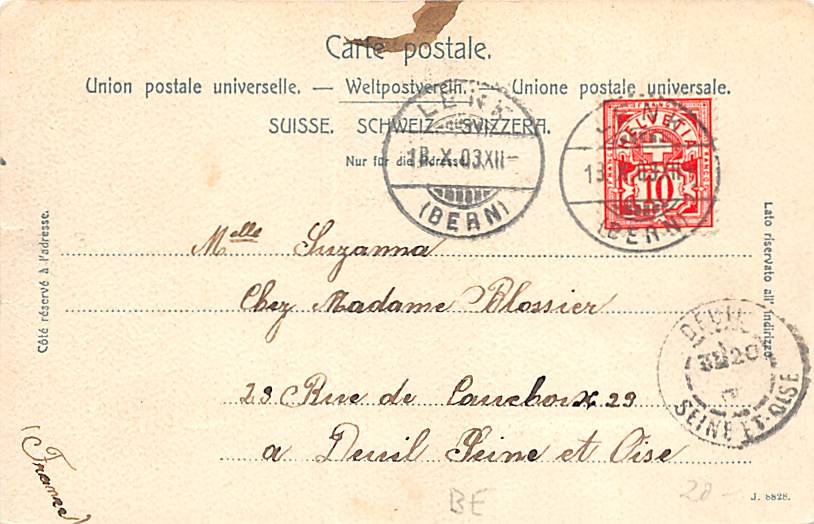 Carte postale.
Union postale universelle. — Weltpostverein. — Unione postale universale.
SUISSE. SCHWEIZ. SVIZZERA.
Nur für die Adresse.
LENK
18.X.03.XII-
(BERN)
LENK
X.03.XII
(BERN)
HELVETIA
10
Côté réservé à l'adresse.
Lato riservato all' indirizzo.
Melle Suzanna
Chez Madame Blossier
29 Rue de Cauchoix 29
a Deuil Seine et Oise
(France)
DEUIL
SEINE ET-OISE
BE
20-
J. 8828.